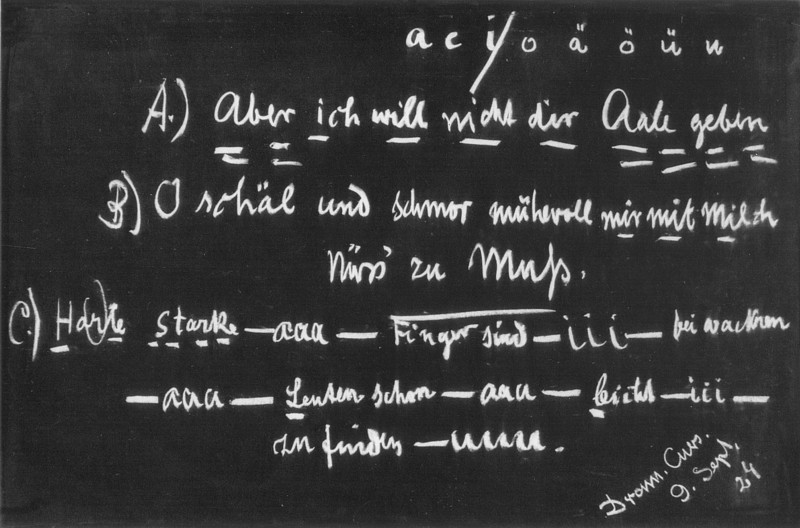 a e i/ o ä ö ü u
A.) Aber ich will nicht dir Aale geben
B) O schäl und schmor mühevoll mir mit Milch
Nüss' zu Muß.
C.) Harte starke — aaa — Finger sind — i i i — bei wackren
— aaa — Leuten schon — aaa — leicht — iii —
zu finden — uuuu.
Dram. Curs.
9. Sept.
24